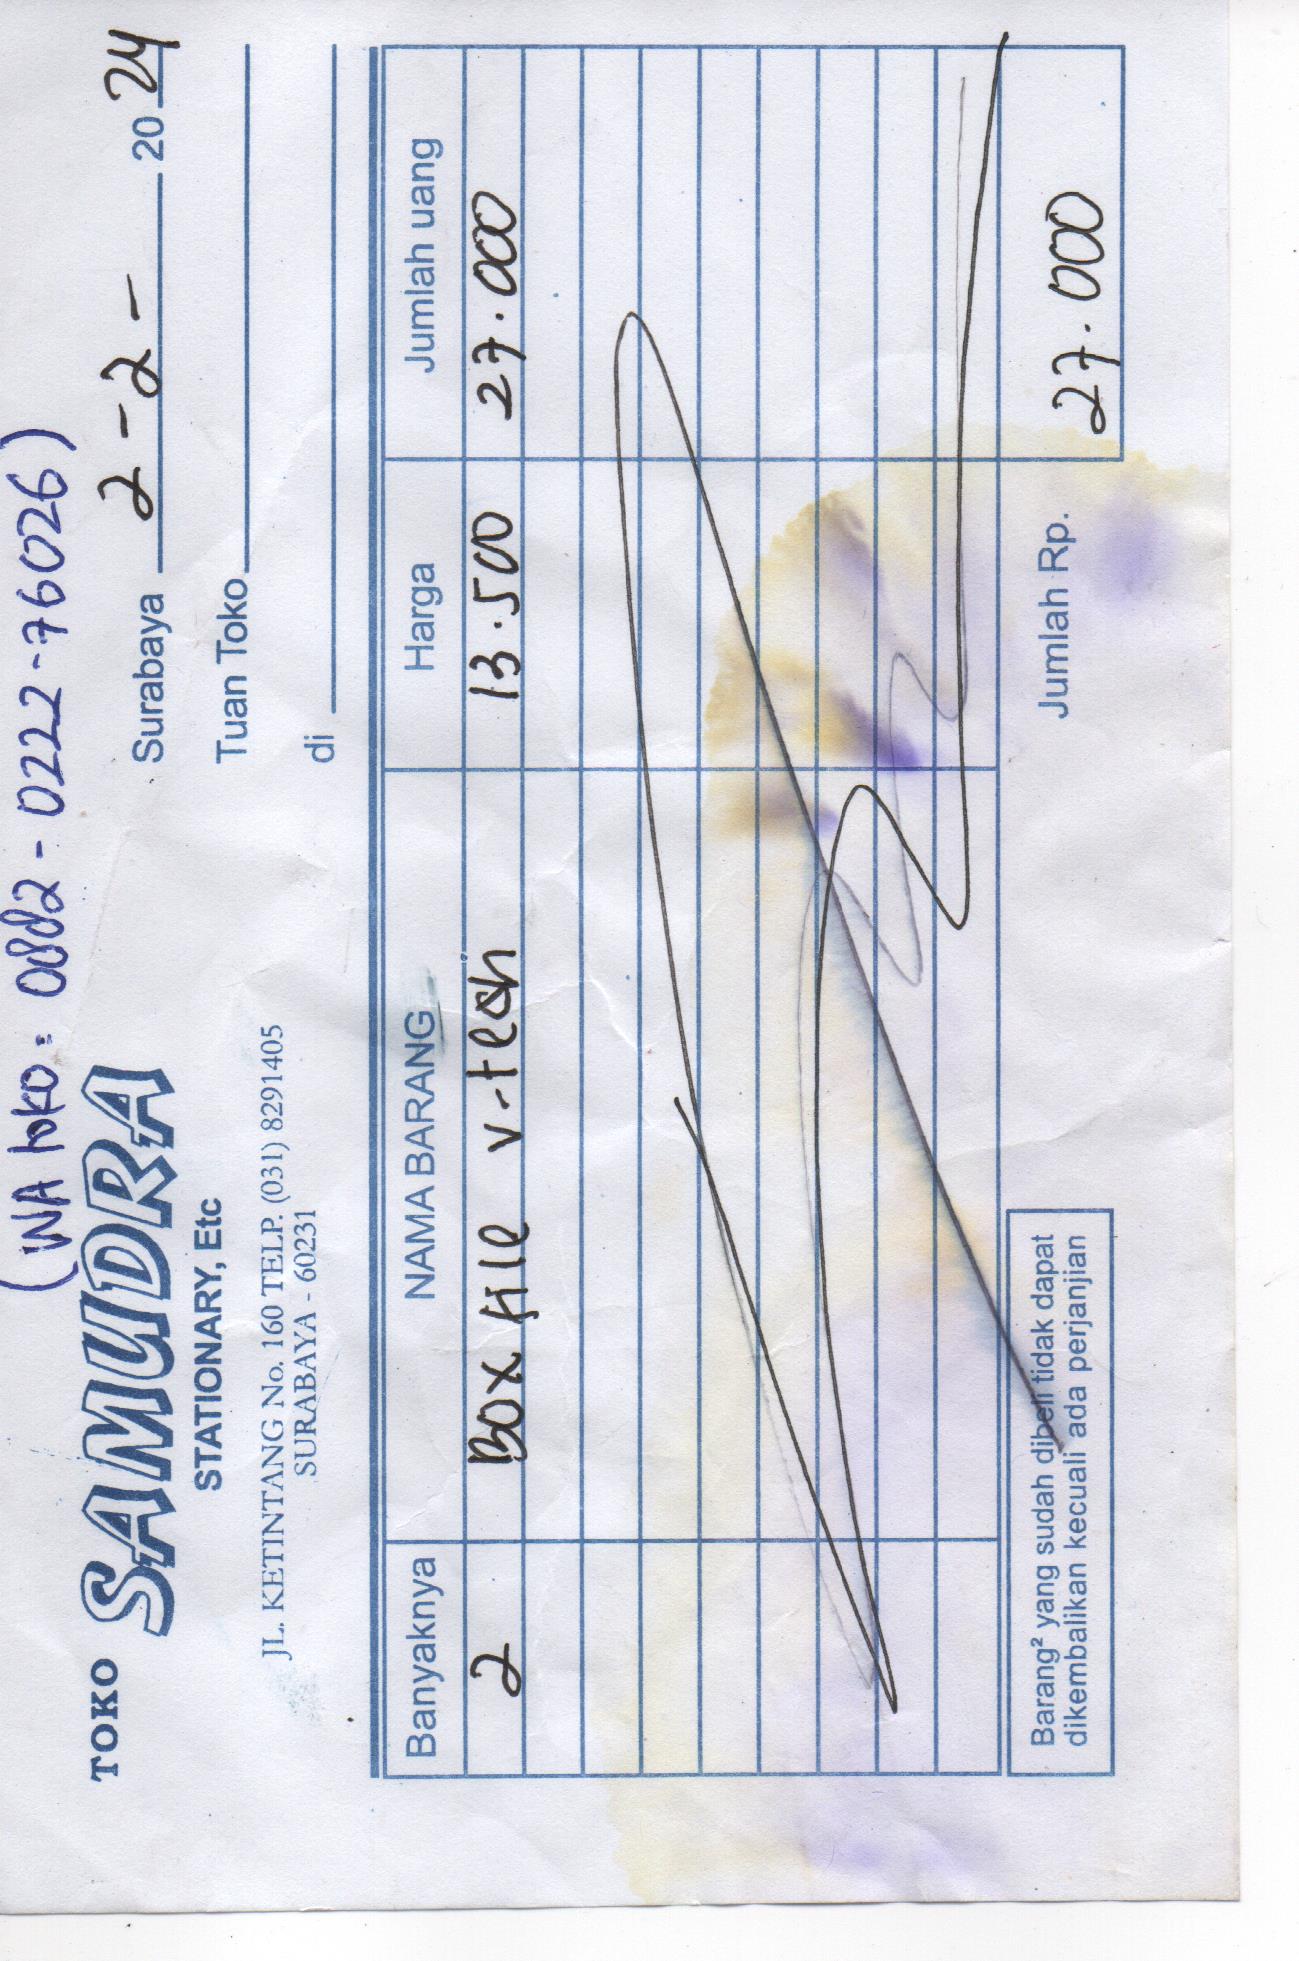 (WA toko : 0882 - 0222 - 76026)
TOKO SAMUDRA
STATIONARY, Etc
JL. KETINTANG No. 160 TELP. (031) 8291405
SURABAYA - 60231
Surabaya 2 - 2 - 20 24
Tuan Toko
di
Banyaknya NAMA BARANG Harga Jumlah uang
2 Box file v-tech 13.500 27.000
Barang² yang sudah dibeli tidak dapat
dikembalikan kecuali ada perjanjian
Jumlah Rp. 27.000